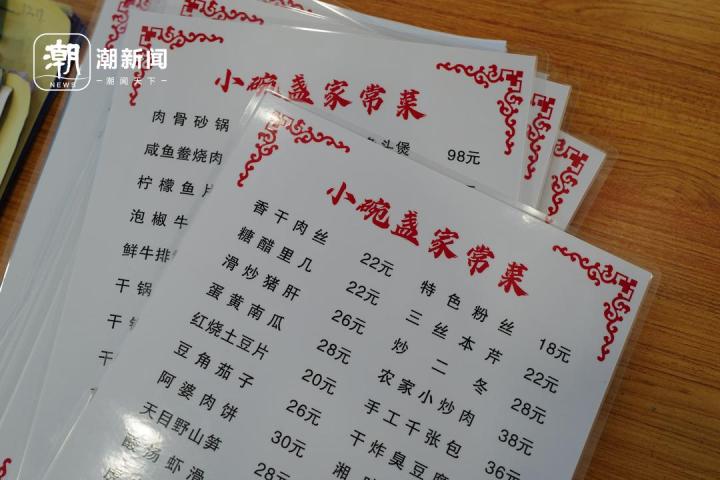 潮 潮新闻
NEWS 潮闻天下
小碗盏家常菜
肉骨砂锅
头煲 98元
咸鱼鲞烧肉
柠檬鱼片
泡椒牛
鲜牛排
干锅
干锅
干
小碗盏家常菜
香干肉丝 22元 特色粉丝 18元
糖醋里几 22元 三丝本芹 22元
滑炒猪肝 26元 炒二冬 28元
蛋黄南瓜 28元 农家小炒肉 38元
红烧土豆片 20元 手工千张包 36元
豆角茄子 26元 干炸臭豆腐
阿婆肉饼 30元 湘
天目野山笋 28元
酸汤虾滑